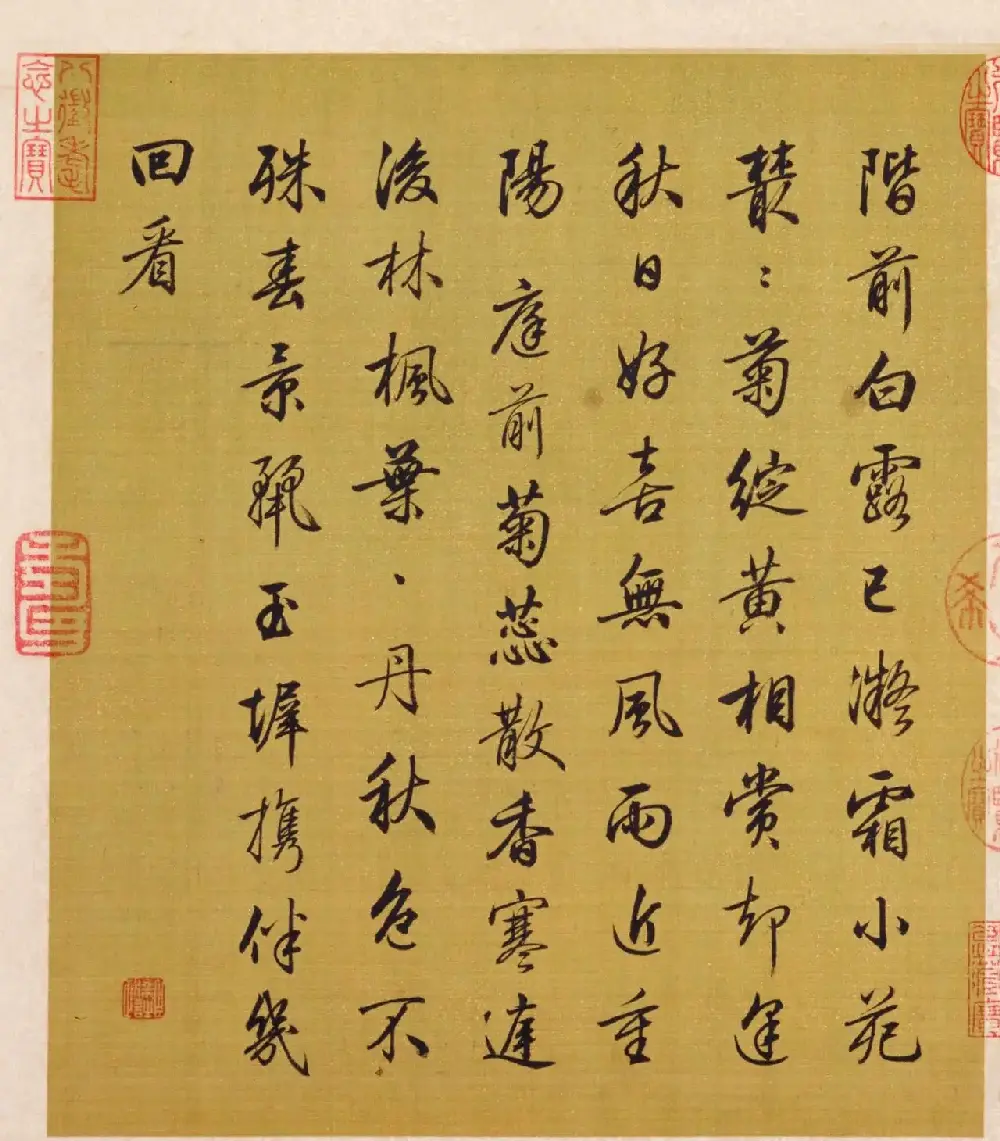 階前白露已凝霜小苑
叢〻菊綻黃相賞却逢
秋日好喜無風雨近重
陽 庭前菊蕊散香寒
後林楓葉〻丹秋色不
殊春景麗玉墀攜伴幾
回看
八徵耄
念之寶
壽